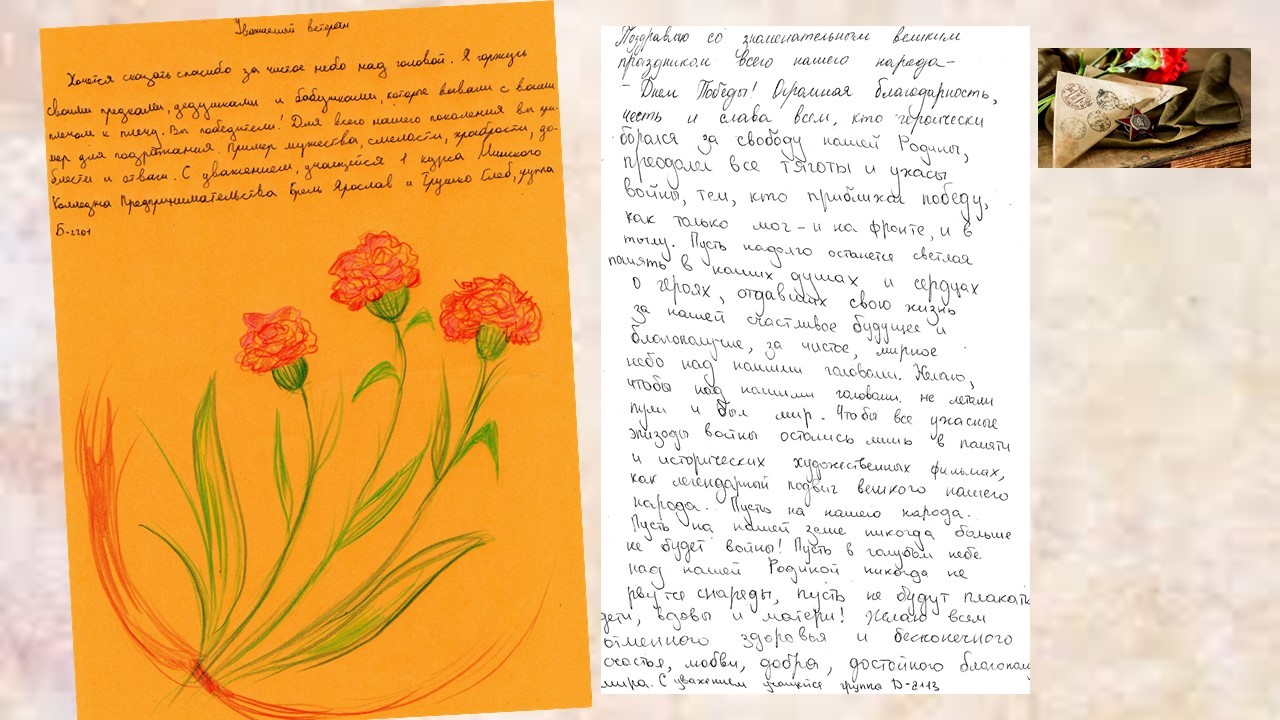 Уважаемый ветеран
Хочется сказать спасибо за чистое небо над головой. Я горжусь
своими предками, дедушками и бабушками, которые воевали с вами
плечом к плечу. Вы победители! Для всего нашего поколения вы при-
мер для подражания. Пример мужества, смелости, храбрости, до-
блести и отваги. С уважением, учащиеся 1 курса Минского
Колледжа Предпринимательства Брель Ярослав и Глеб, группа
Б-2201
Поздравляю со знаменательным великим
праздником всего нашего народа-
- Днем Победы! Огромная благодарность,
честь и слава всем, кто героически
боролся за свободу нашей Родины,
преодолел все тяготы и ужасы
войны, тем, кто приближал победу,
как только мог - и на фронте, и в
тылу. Пусть надолго останется светлая
память в наших душах и сердцах
о героях, отдавших свою жизнь
за нашей счастливое будущее и
благополучие, за чистое, мирное
небо над нашими головами. Желаю,
чтобы над нашими головами не летали
пули и был мир. Чтобы все ужасные
эпизоды войны остались лишь в памяти
и исторических художественных фильмах,
как легендарный подвиг великого нашего
народа. Пусть на нашего народа.
Пусть на нашей земле никогда больше
не будет войны! Пусть в голубом небе
над нашей Родиной никогда не
рвутся снаряды, пусть не будут плакать
дети, вдовы и матери! Желаю всем
отменного здоровья и бесконечного
счастья, любви, добра, достойного благопол
мира. С уважением учащийся группа D-2113